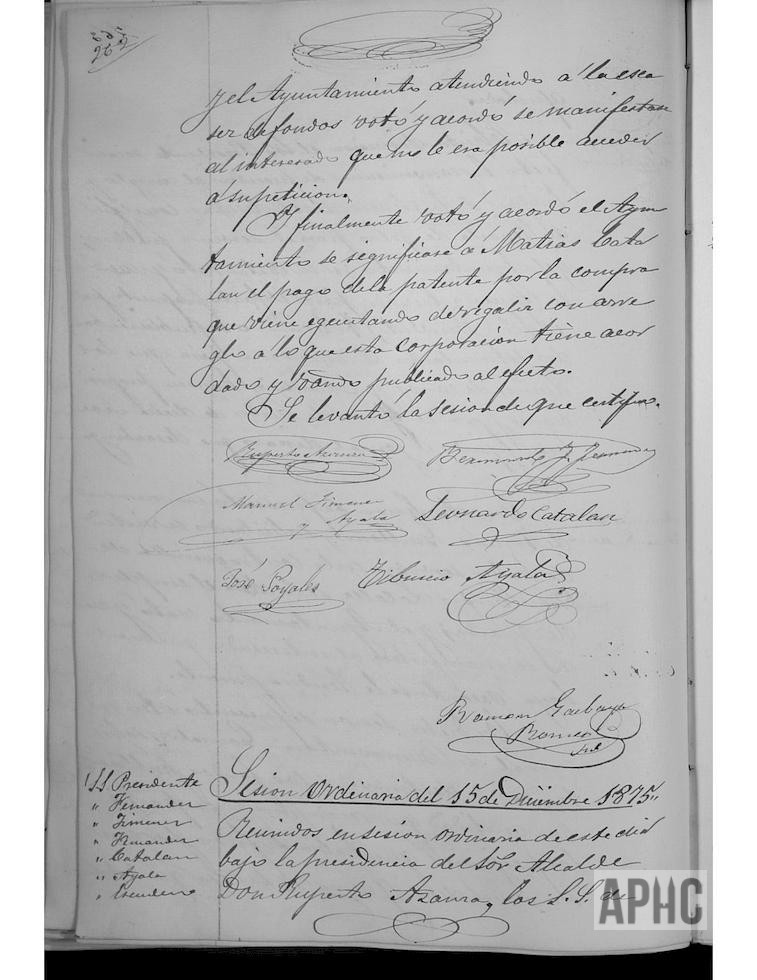 y el Ayuntamiento atendiendo á la esca
ser de fondos votó y acordó se manifestara
al interesado que no le era posible acceder
á su peticion.
Y finalmente votó y acordó el Ayun
tamiento se significase á Matias Cata
lan el pago dela patente por la compra
que viene egecutando de regaliz con arre
glo á lo que esta Corporacion tiene acor
dado y vando publicado al efecto.
Se levantó la sesion de que certifico.
Ruperto Azanza
Manuel Jimenez
y Ayala
Leonardo Catalan
José Poyales
Tiburcio Ayala
Ramon Garbayo
Romeo
Srio
SS Presidente
" Fernandez
" Jimenez
" Fernandez
" Catalan
" Ayala
"
Sesion Ordinaria del 15 de Diciembre 1875"
Reunidos en sesion ordinaria de este dia
bajo la presidencia del Sor Alcalde
Don Ruperto Azanza, los S.S. de
APHC